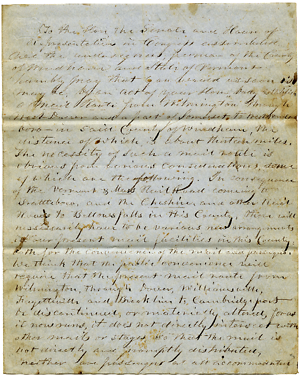 To the Hon the Senate and House of
Representatives in Congress assembled
The undersigned of the County
of Windham and State of Vermont
humbly pray that your period will soon as
may be, open as your Hon. body establish
a Mail Route from Wilmington through
West Dover and part of Somerset to Wards-
boro in Said County of Windham, the
distance of which, is about thirteen miles.
The necessity of such a mail route is
obvious from various considerations some
of which are the following. In consequence
of the Vermont & Mass Rail Road coming to
Brattleboro, and the Cheshire, and other Rail
Road to Bellows falls in this County, there will
necessarily have to be various new arrangements
of our present mail facilities in this County
& the for the convenience of the mail and passengers
we think that the public convenience will
require that the present mail route from
Wilmington, through Dover, Williamsville,
Fayetteville and Brooklin to Cambridgeport
be discontinued, or materially altered, for as
it now runs, it does not directly intersect with
other mails or Stages so that the mail is
not directly and promptly distributed,
neither are passengers as well accommodated